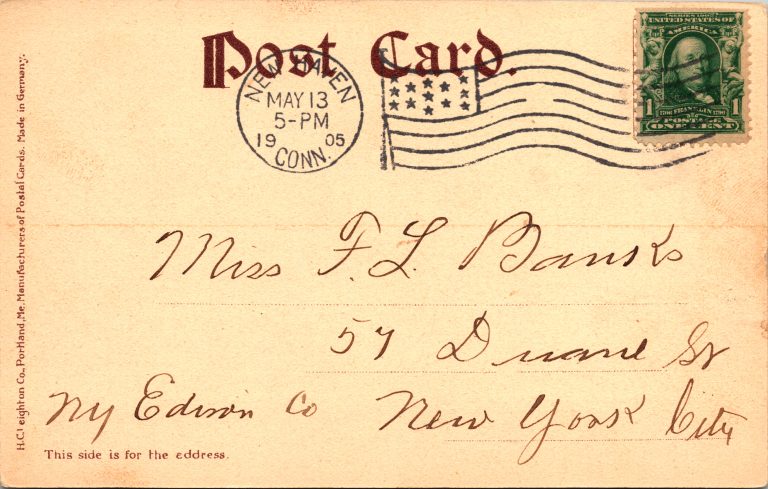 Post Card.
NEW HAVEN
MAY 13
5-PM
19 05
CONN.
SERIES 1902
UNITED STATES OF
AMERICA
1 FRANKLIN 1
POSTAGE
ONE CENT
H.C. Leighton Co., Portland, Me. Manufacturers of Postal Cards. Made in Germany.
Miss F. L. Banks
57 Duane St
NY Edison Co New York City
This side is for the address.